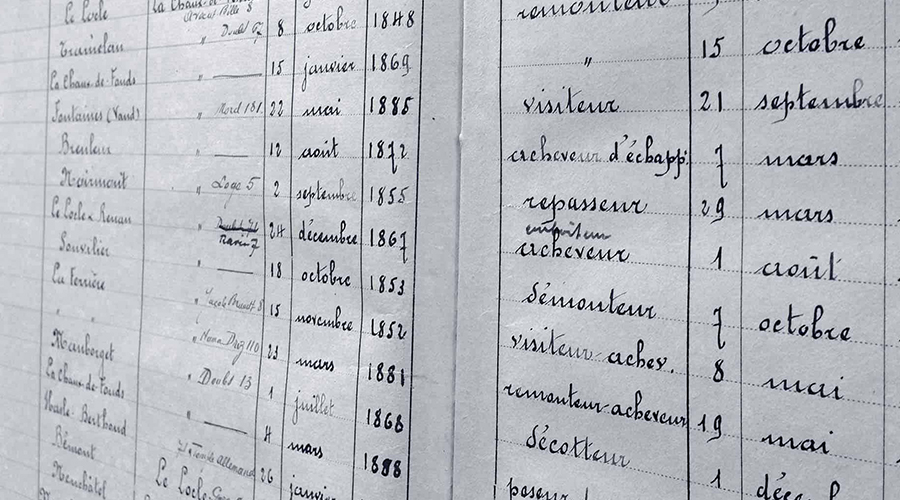 Le Locle la Chaux-de- 8 octobre 1848 remonteur
Tramelan " Doubs 67 15 janvier 1869 " 15 octobre
La Chaux-de-Fonds " — 22 mai 1885 visiteur 21 septembre
Fontaines (Vaud) " Nord 151 12 août 1872 acheveur d'échapp. 7 mars
Breuleux " — 2 septembre 1855 repasseur 29 mars
Noirmont " Loge 5 24 décembre 1867 emboîteur acheveur 1 août
Le Locle & Renan " Ravin 7 18 octobre 1853 démonteur 7 octobre
Sonvilier " — 15 novembre 1852 visiteur-achev. 8 mai
La Ferrière " 8 23 mars 1881 remonteur-acheveur 19 mai
" " " Numa Droz 110 1 juillet 1868 décotteur 1
Mauborget " Doubs 13 4 mars 1888
La Chaux-de-Fonds " — 26
Hasle-Berthoud Allemand
Bémont Le Locle
Neuchâtel